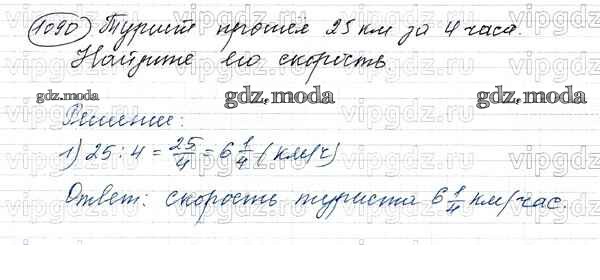 1090 Турист прошел 25 км за 4 часа.
Найдите его скорость
gdz.moda gdz.moda gdz.moda
Решение:
1) 25 : 4 = 25/4 = 6 1/4 (км/ч)
Ответ: скорость туриста 6 1/4 км/час.
vipgdz.ru